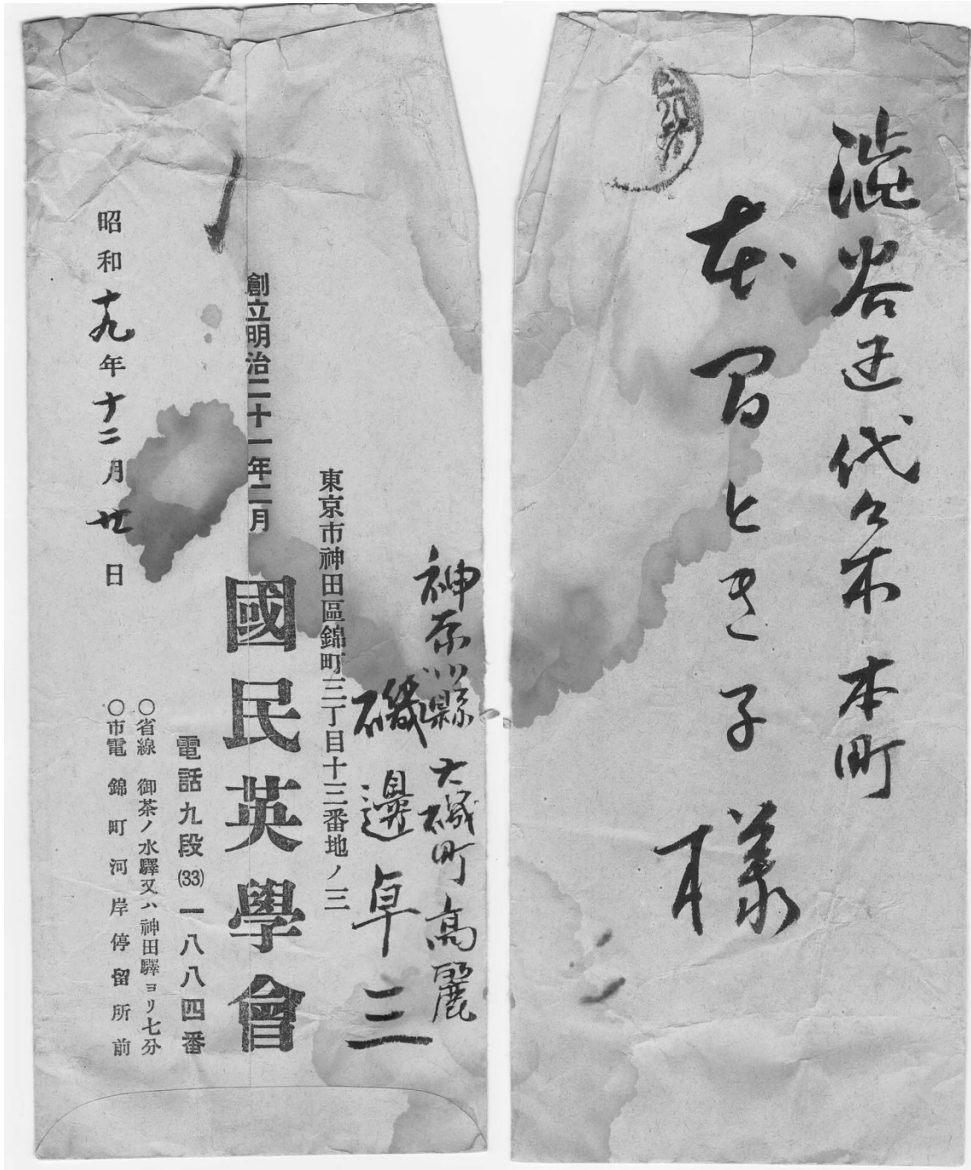 澁谷区代々木本町
本間とき子様
神奈川縣大磯町高麗
磯邊卓三
東京市神田區錦町三丁目十三番地ノ三
創立明治二十一年二月
國民英學會
電話九段(33)一八八四番
○省線 御茶ノ水驛又ハ神田驛ヨリ七分
○市電 錦町河岸停留所前
昭和十九年十二月廿日